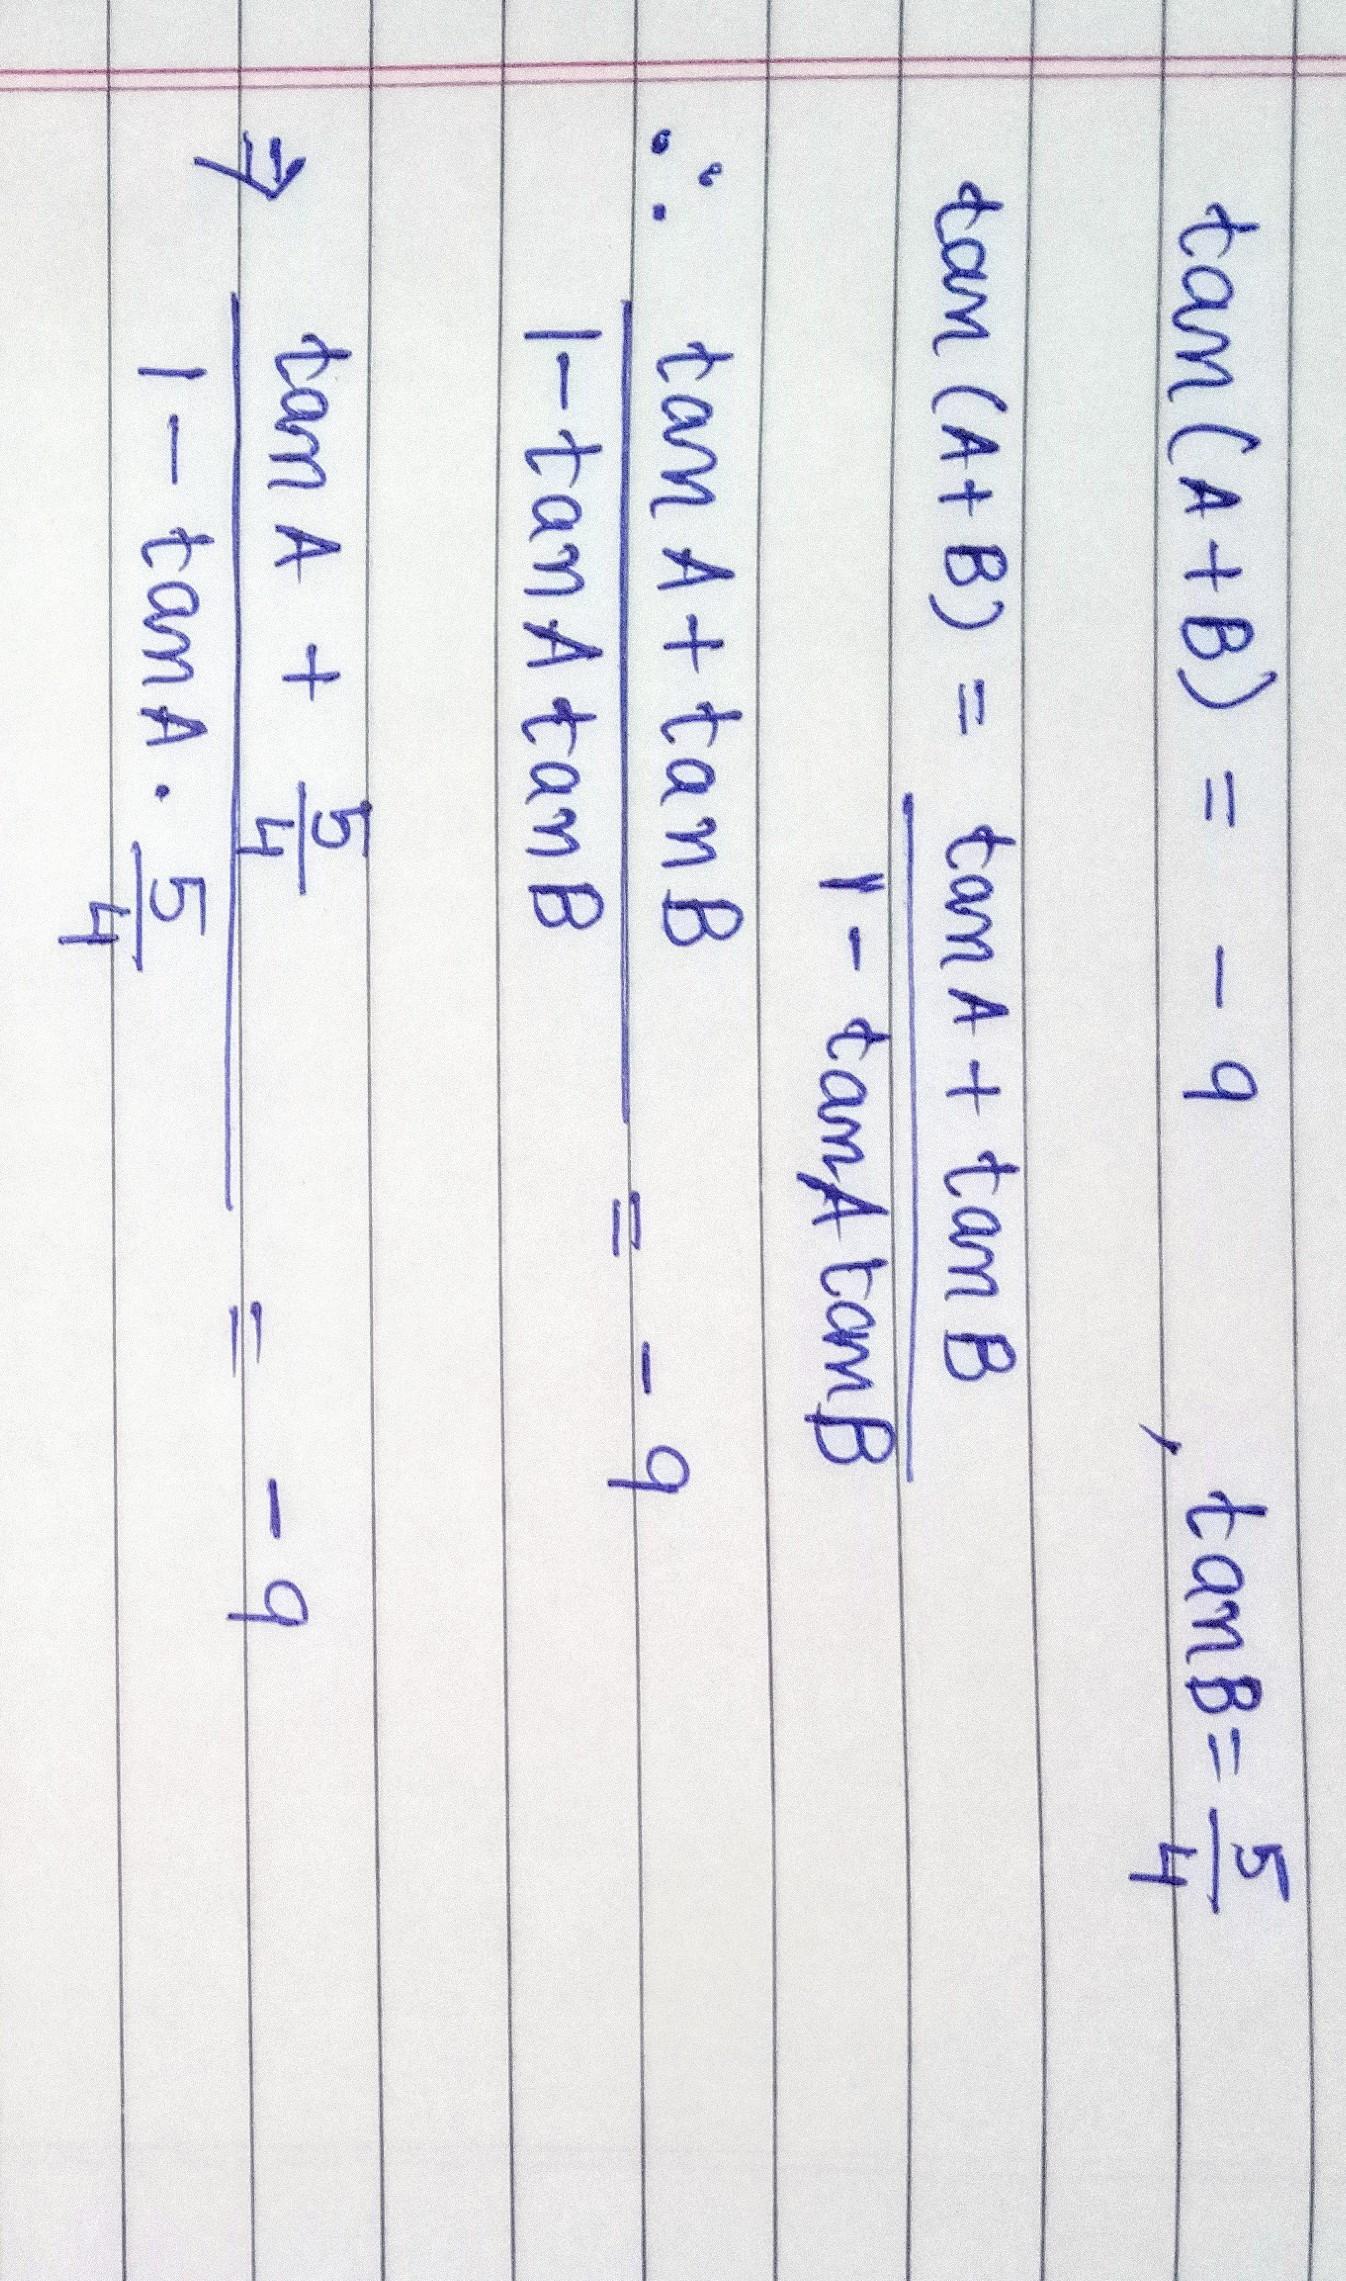 tan(A+B) = - 9 , tanB = 5/4
tan(A+B) = (tanA + tanB)/(1 - tanA tanB)
∴ (tanA + tanB)/(1 - tanA tanB) = - 9
⇒ (tanA + 5/4)/(1 - tanA · 5/4) = - 9